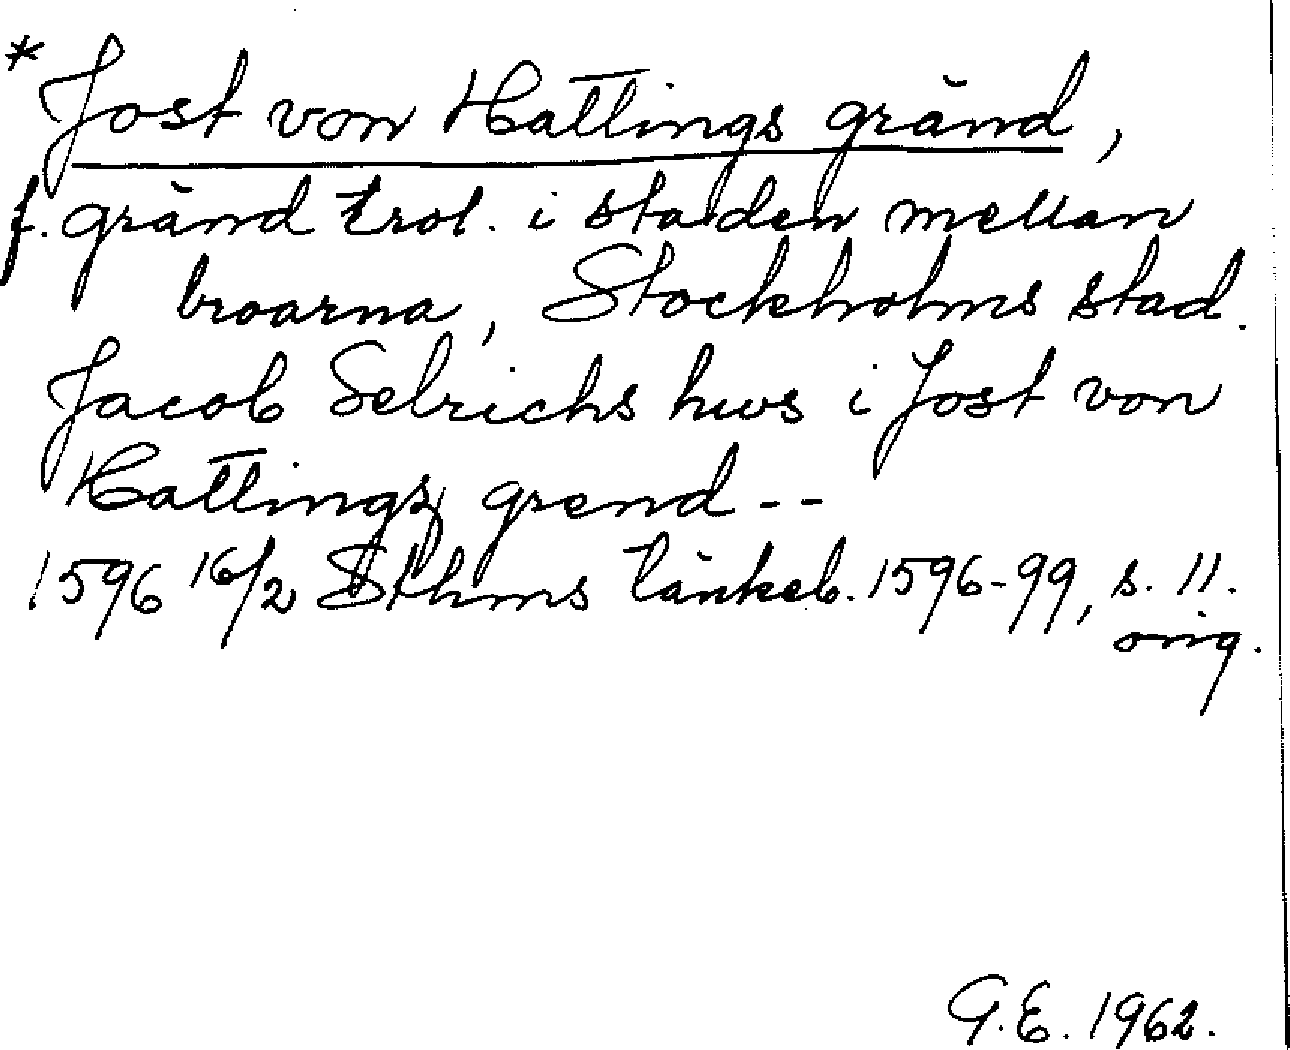 * Jost von Hattings gränd,
f. gränd trol. i staden mellan
broarna, Stockholms stad.
Jacob Selrichs hws i Jost von
Hattingz grend --
1596 16/2 Sthms tänkeb. 1596-99, s. 11.
orig.
G.E. 1962.